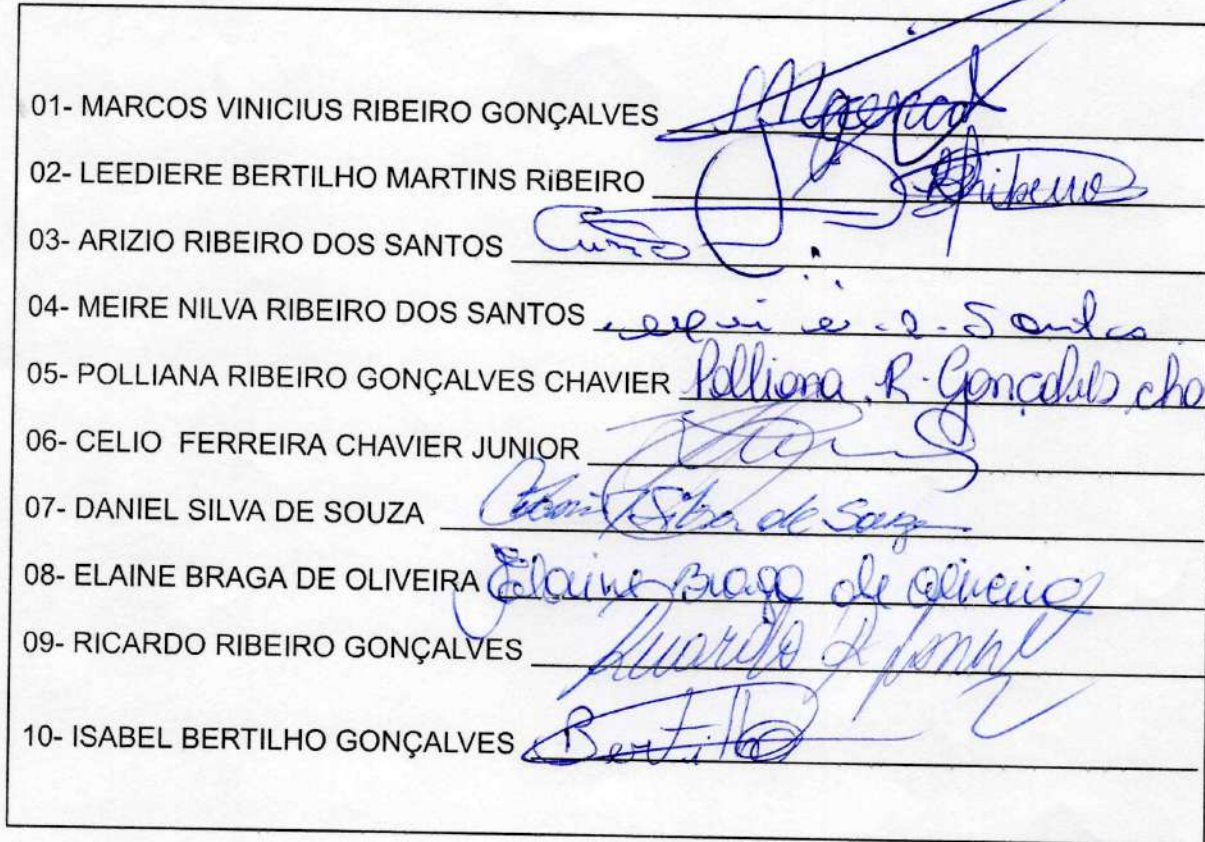 01- MARCOS VINICIUS RIBEIRO GONÇALVES
02- LEEDIERE BERTILHO MARTINS RiBEIRO Ribeiro
03- ARIZIO RIBEIRO DOS SANTOS
04- MEIRE NILVA RIBEIRO DOS SANTOS Santos
05- POLLIANA RIBEIRO GONÇALVES CHAVIER Polliana R. Gonçalves cha
06- CELIO FERREIRA CHAVIER JUNIOR
07- DANIEL SILVA DE SOUZA Daniel Silva de Souza
08- ELAINE BRAGA DE OLIVEIRA Elaine Braga de Oliveira
09- RICARDO RIBEIRO GONÇALVES Ricardo R
10- ISABEL BERTILHO GONÇALVES Bertilho